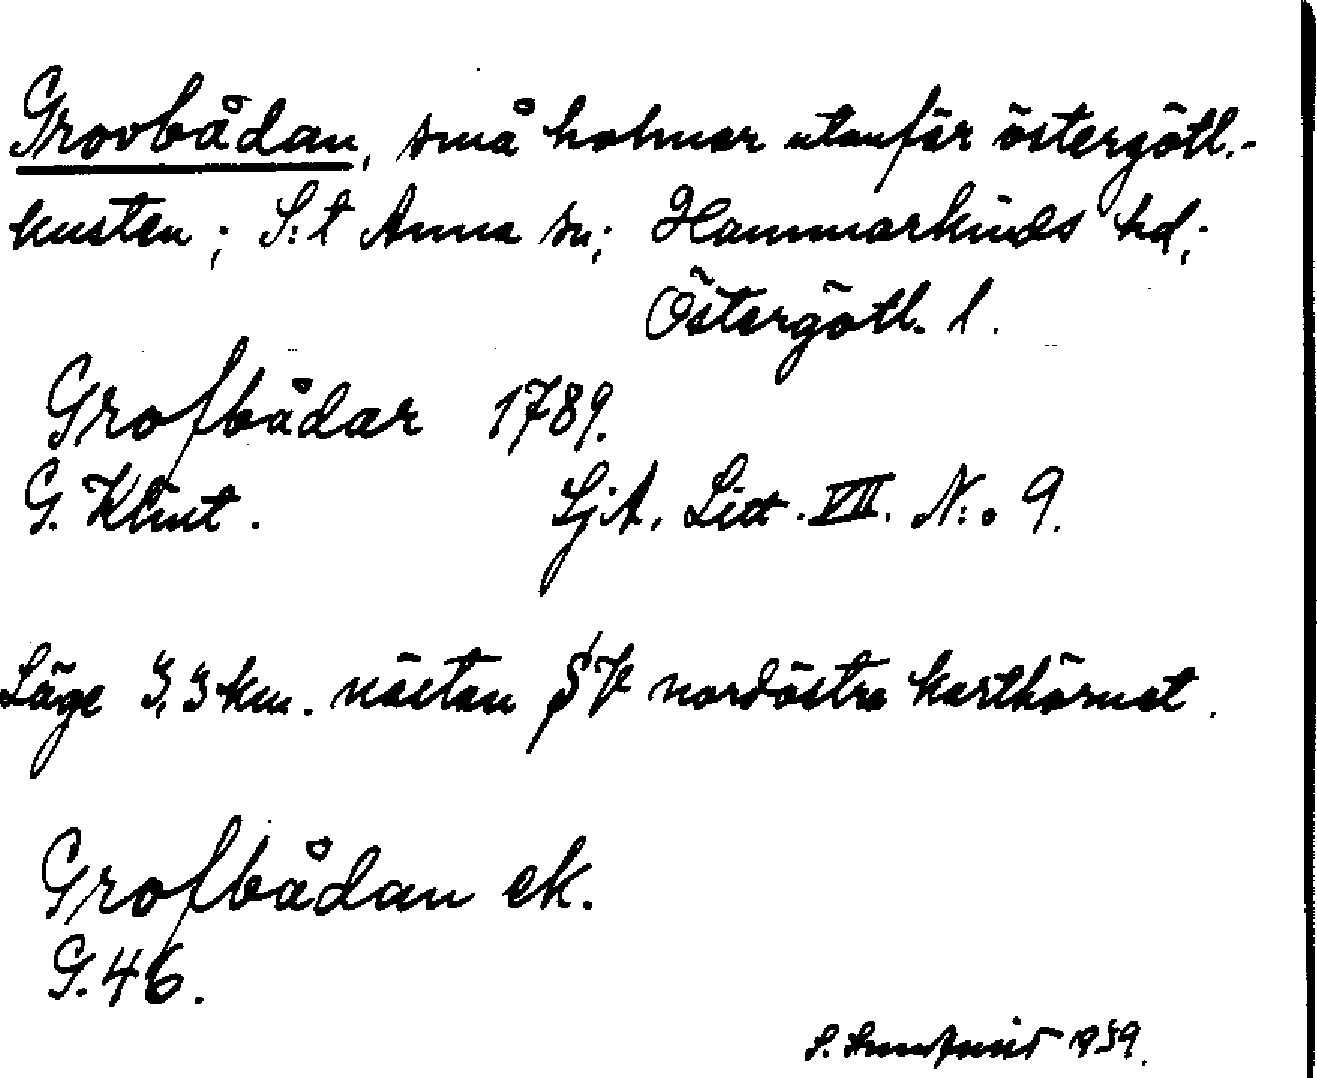 Grovbådan, små holmar utanför östergötl.-
kusten; S:t Anna sn; Hammarkinds hd;
Östergötl. l.
Grofbådar 1789.
G. Klint. Sjk. Litt. VII. N:o 9.
Läge 3,3 km. nästan SV nordöstra karthörnet.
Grofbådan ek.
G. 46.
S. 1939.